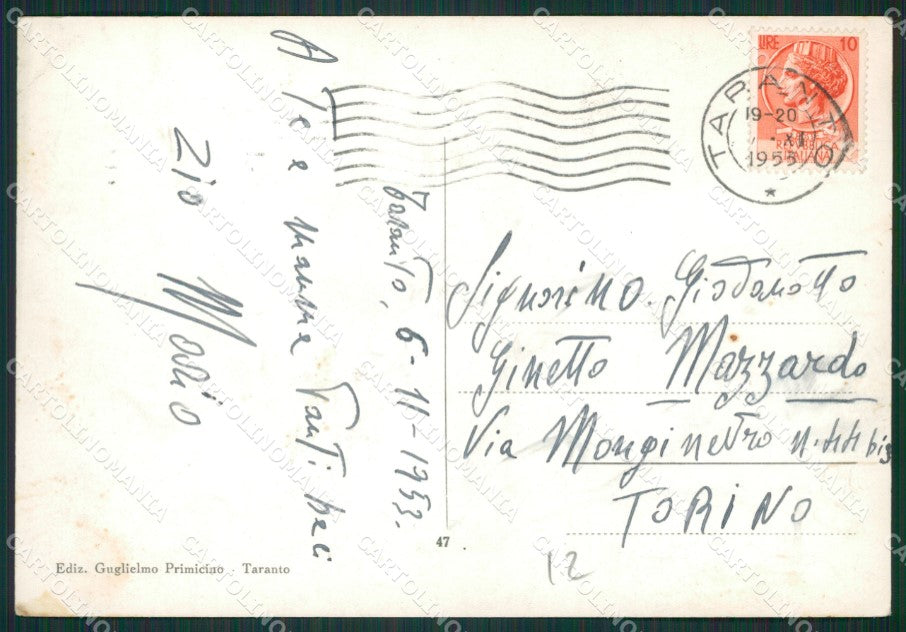 Taranto, 6-11-1953.
A te e mamma tanti baci
Zio Mario
LIRE 10
REPUBBLICA
ITALIANA
TARANTO
19-20
XI
1953
Signorino. Giodonotto
Ginetto Mazzardo
Via Monginevro n. 44 bis
TORINO
12
47
Ediz. Guglielmo Primicino - Taranto
CARTOLINOMANIA